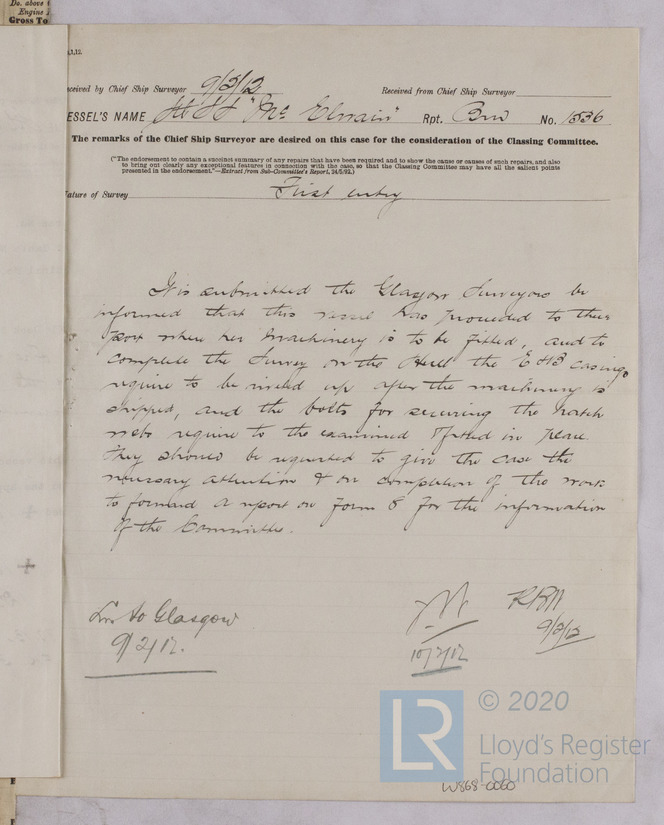 Do. above
Engine
Gross To
,1,12.
eceived by Chief Ship Surveyor 9/2/12 Received from Chief Ship Surveyor
ESSEL'S NAME "Mc Elwain" Rpt. No. 1536
The remarks of the Chief Ship Surveyor are desired on this case for the consideration of the Classing Committee.
("The endorsement to contain a succinct summary of any repairs that have been required and to show the cause or causes of such repairs, and also
to bring out clearly any exceptional features in connection with the case, so that the Classing Committee may have all the salient points
presented in the endorsement."—Extract from Sub-Committee's Report, 24/5/92.)
ature of Survey First entry
It is submitted the Glasgow Surveyors be
informed that this vessel has proceeded to their
port where her machinery is to be fitted, and to
complete the Survey on the Hull the E & B casings
require to be riveted up after the machinery is
shipped, and the bolts for securing the hatch
webs require to the examined & fitted in place
They should be requested to give the case the
necessary attention & on completion of the work
to forward a report on Form 8 for the information
of the Committee.
Lr. to Glasgow
9/2/12.
10/2/12
9/2/12
LR
© 2020
Lloyd's Register
Foundation
W868-0060